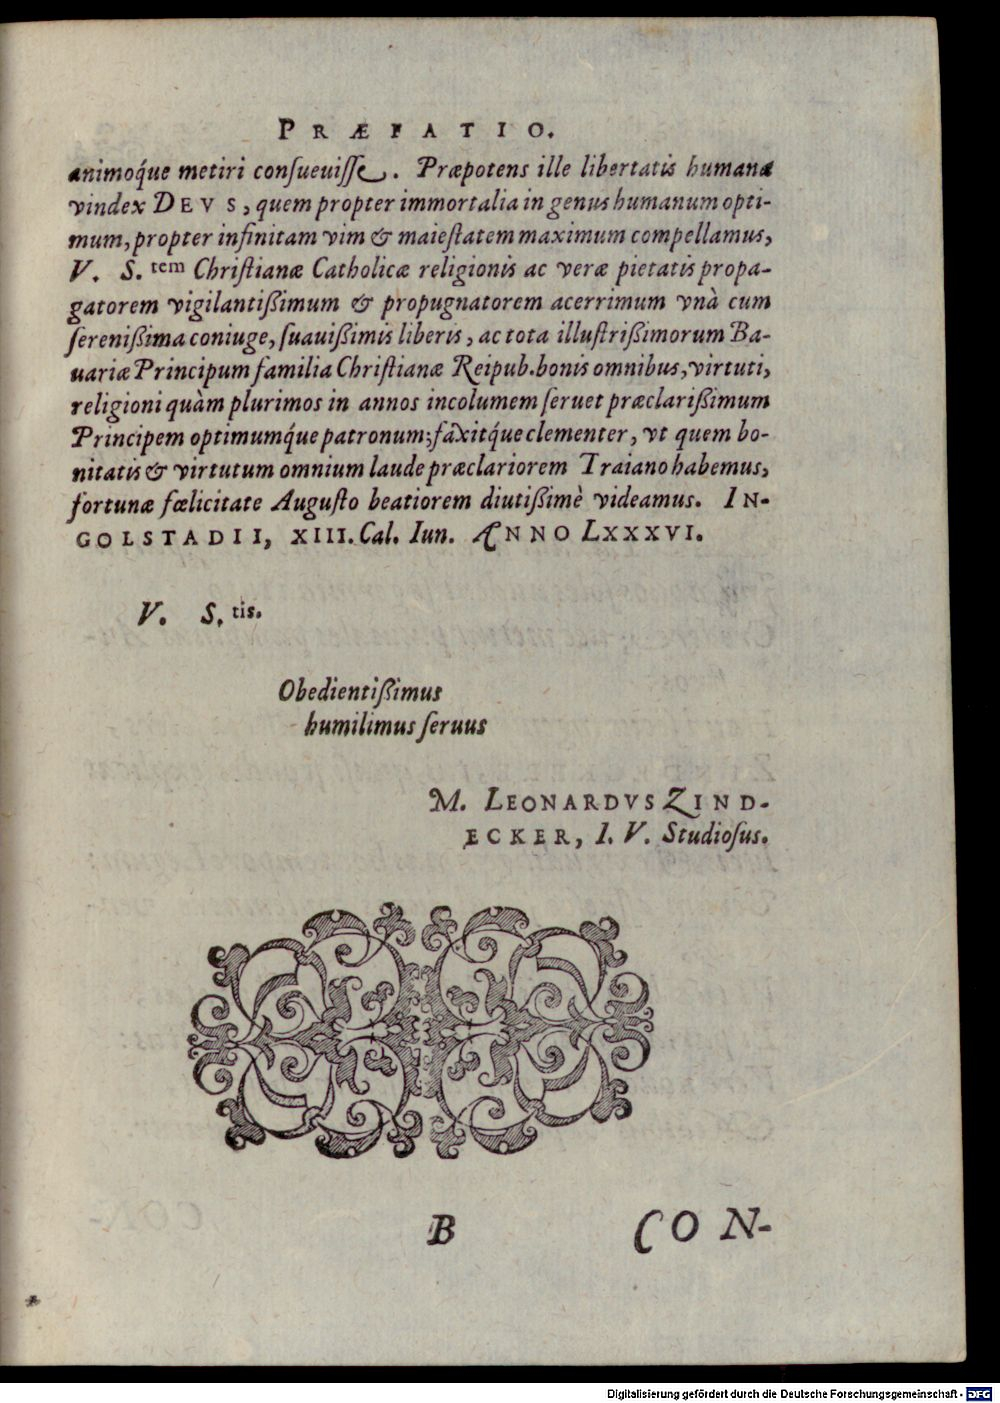 PRÆFATIO.
animoq́ue metiri conſueuiſſe. Præpotens ille libertatis humanæ
vindex DEVS, quem propter immortalia in genus humanum opti-
mum, propter infinitam vim & maieſtatem maximum compellamus,
V. S.tem Chriſtianæ Catholicæ religionis ac veræ pietatis propa-
gatorem vigilantißimum & propugnatorem acerrimum vnà cum
ſerenißima coniuge, ſuauißimis liberis, ac tota illuſtrißimorum Ba-
uariæ Principum familia Chriſtianæ Reipub. bonis omnibus, virtuti,
religioni quàm plurimos in annos incolumem ſeruet præclarißimum
Principem optimumq́ue patronum; faxitq́ue clementer, vt quem bo-
nitatis & virtutum omnium laude præclariorem Traiano habemus,
fortunæ fœlicitate Auguſto beatiorem diutißimè videamus. IN-
GOLSTADII, XIII. Cal. Iun. ANNO LXXXVI.
V. S.tis.
Obedientißimus
humilimus ſeruus
M. LEONARDVS ZIND-
ECKER, I. V. Studioſus.
B
CON-
Digitalisierung gefördert durch die Deutsche Forschungsgemeinschaft - DFG